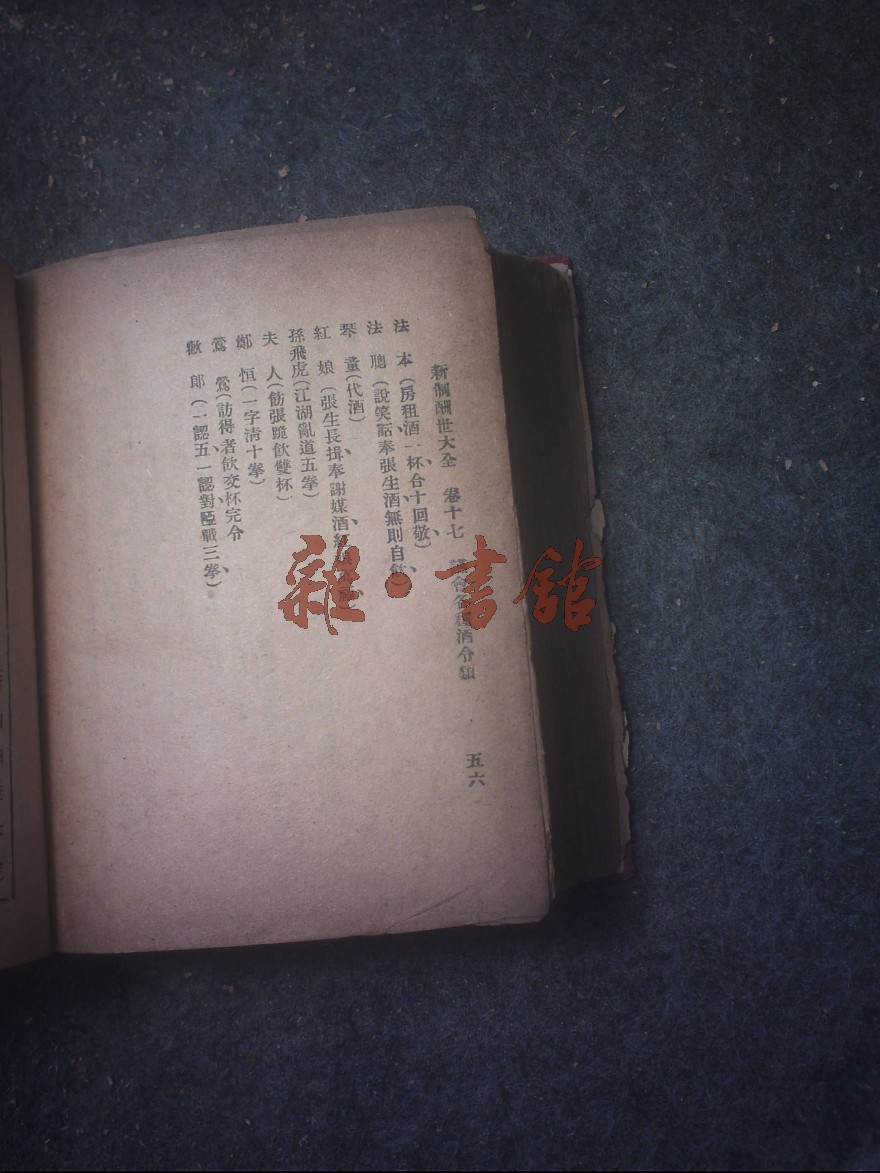 新倜酬世大全 卷十七 會各種酒令類 五六
法本(房租酒一杯合十回敬)
法聰(說笑話奉張生酒無則自飲)
琴童(代酒)
紅娘(張生長揖奉謝媒酒
孫飛虎(江湖亂道五拳)
夫人(飭張跪飲雙杯)
鄭恒(一字淸十拳)
鶯鶯(訪得者飮交杯完令
歡郎(一認五、一認對啞戰三拳)
雜·書館